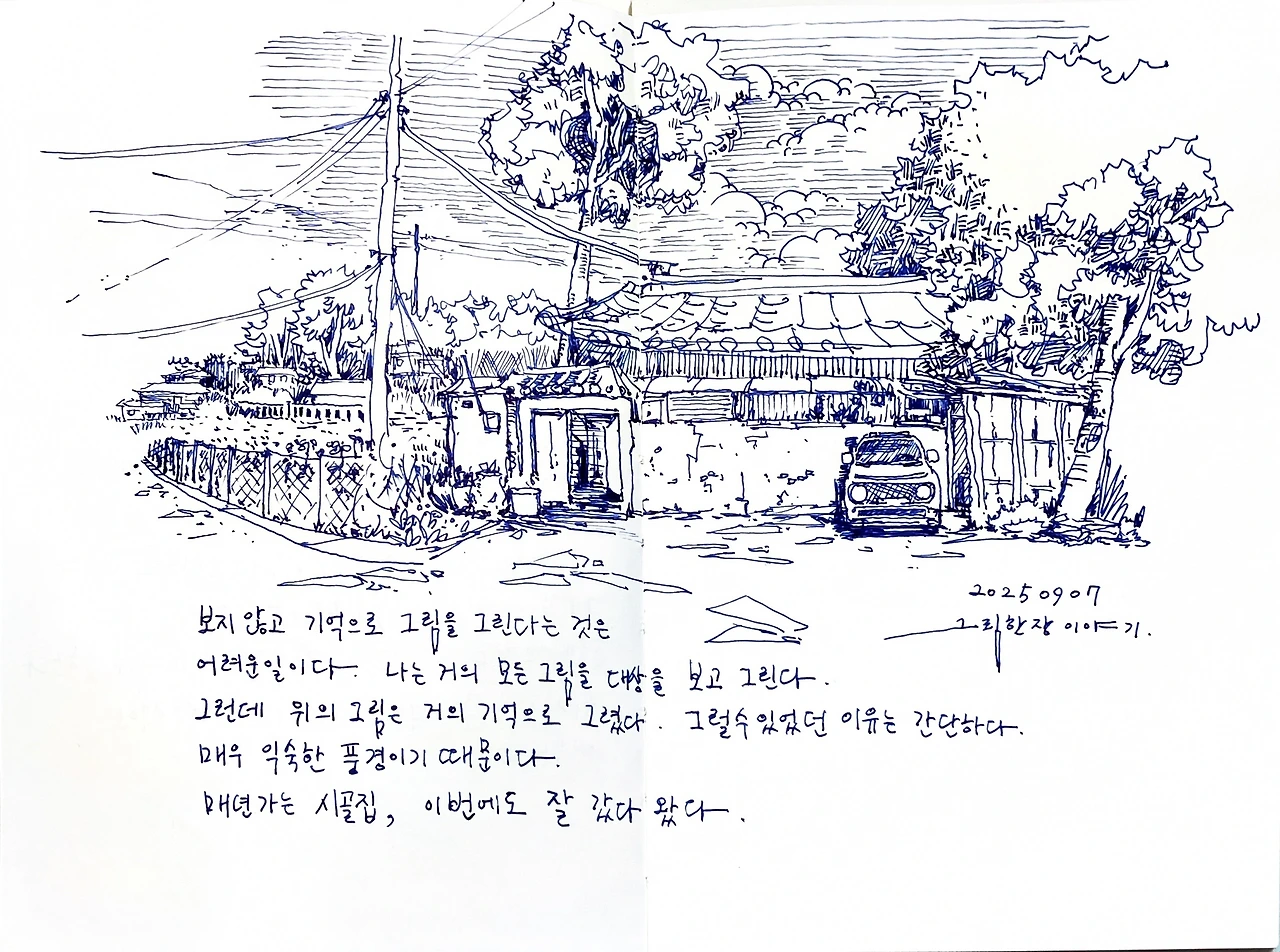 20250907
그림한장 이야기.
보지 않고 기억으로 그림을 그린다는 것은
어려운일이다. 나는 거의 모든 그림을 대상을 보고 그린다.
그런데 위의 그림은 거의 기억으로 그렸다. 그럴수있었던 이유는 간단하다.
매우 익숙한 풍경이기 때문이다.
매년가는 시골집, 이번에도 잘 갔다 왔다.